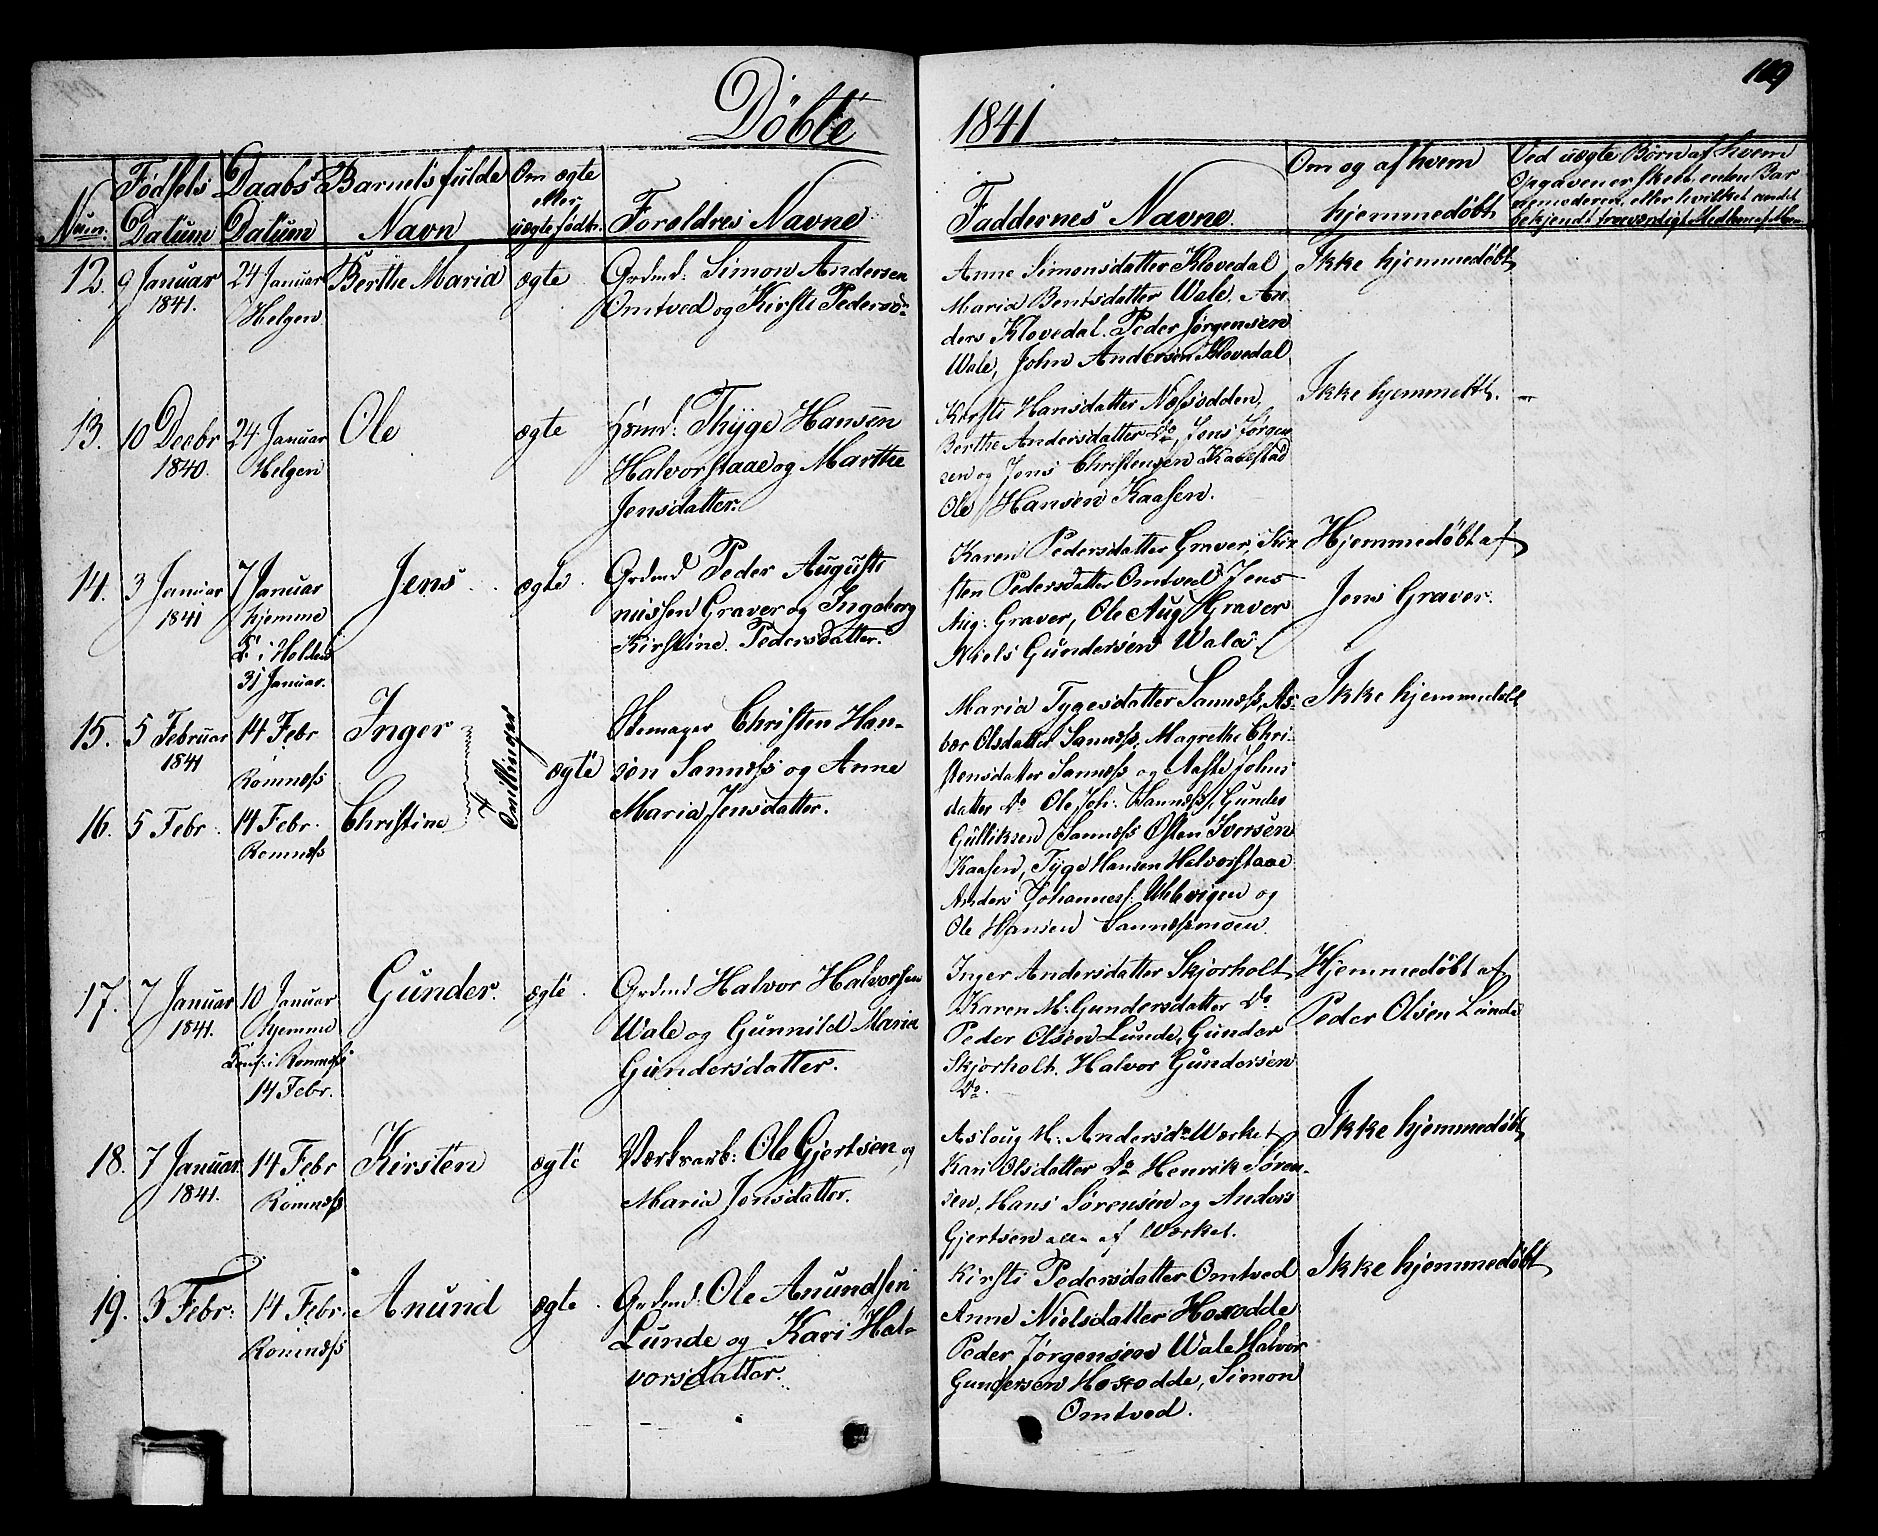 Döbte 1841
109
Num.
Födsels Datum
Daabs Datum
Barnets fulde Navn
Om ægte eller uægte født.
Foreldres Navne
Faddernes Navne.
Om og af hvem hjemmedøbt
Ved uægte Børn af hvem
Opgaven er skeet, enten Bar
nemoderen, eller hvilket andet
bekjendt troværdigt Medlem af Men
12. 9 Januar 1841. 24 Januar Helgen Berthe Maria ægte
Grdmd: Simon Andersen
Omtved og Kirsti Pedersd:
Anne Simonsdatter Klovedal
Maria Bentsdatter Wale, An
ders Klovedal. Peder Jørgensen
Wale, John Andersen Klovedal
Ikke hjemmedøbt
13. 10 Decbr 1840. 24 Januar Helgen Ole ægte
Hsmd: Thyge Hansen
Halvorstaae og Marthe
Jensdatter.
Kirsti Hansdatter Næssodden,
Berthe Andersdatter Do, Jens Jörgen
sen og Jens Christensen Kaasstad
Ole Hansen Kaasen.
Ikke hjemmedt. —
14. 3 Januar 1841 7 Januar hjemme D: i Holden 31 Januar. Jens ægte
Grdmd Peder Augusti
nussen Graver og Ingeborg
Kirstine Pedersdatter.
Karen Pedersdatter Graver, Kir
sten Pedersdatter Omtved Jens
Aug: Graver, Ole Aug Graver
Niels Gundersen Wala.
Hjemmedøbt af
Jens Graver.
15. 5 Februar 1841 14 Febr Romnæss Inger
Tvillinger ægte
Christen Han-
sen Sannæss og Anne
Maria Jensdatter.
16. 5 Febr. 14 Febr. Romnæss Christine
Maria Tygesdatter Sannæss, As-
bør Olsdatter Sannæss, Magrethe Chri-
stensdatter Sannæss og Aaste Johns
datter Do Ole Joh: Sannæss, Gunder
Gulliksen Sannæss Østen Iversen
Kaasen, Tyge Hansen Halvorstaae
Anders Johanness: Uhlevigen og
Ole Hansen Sannæssmoen
Ikke hjemmedøbt
17. 7 Januar 1841. 10 Januar hjemme i Romnæss 14 Febr. Gunder. ægte
Grdmd Halvor Halvorsen
Wale og Gunnild Maria
Gundersdatter.
Inger Andersdatter Skjorholt
Karen M. Gundersdatter Do
Peder Olsen Lunde, Gunder
Skjorholt. Halvor Gundersen
Do.
Hjemmedøbt af
Peder Olsen Lunde
18. 7 Januar 1841. 14 Febr Romnæss Kirsten ægte
Værksarb: Ole Gjertsen og
Maria Jensdatter.
Aslaug M. Andersdtr Wærket
Kari Olsdatter Do Henrik Søren-
sen, Hans Sørensen og Anders
Gjertsen alle af Wærket.
Ikke hjemmedøbt
19. 3 Febr: 14 Febr. Romnæss Anund ægte
Grdmd: Ole Anundsen
Lunde og Kari Hal-
vorsdatter.
Kirsti Pedersdatter Omtved
Anne Nielsdatter Hoxodde
Peder Jørgensen Wale Halvor
Gundersen Hoxodde, Simon
Omtved.
Ikke hjemmedøbt